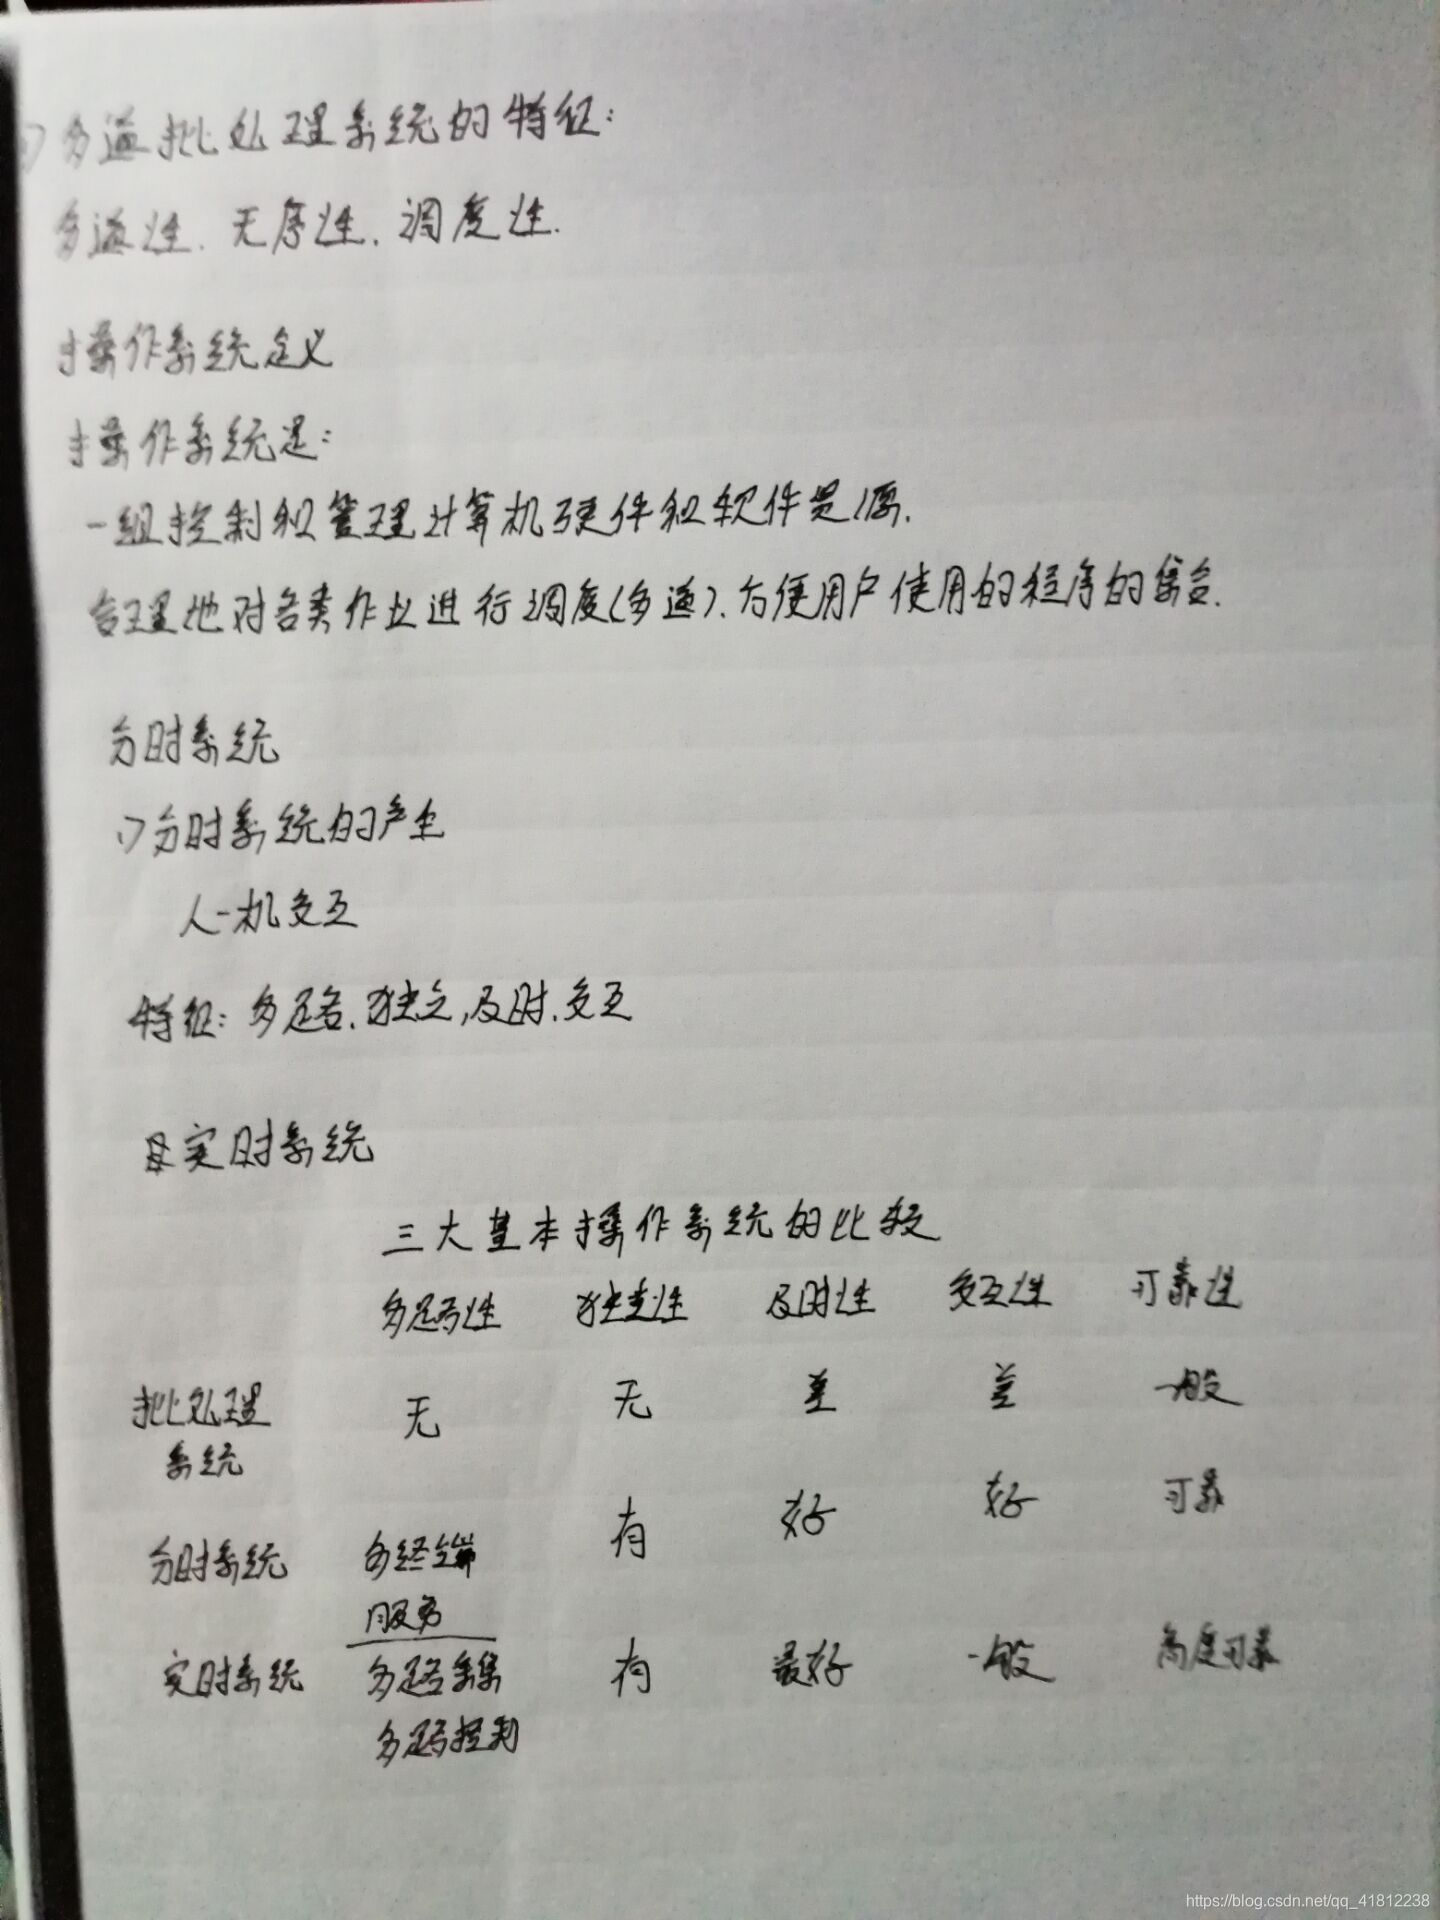 多道批处理系统的特征:
多道性、无序性、调度性.
操作系统定义
操作系统是:
一组控制和管理计算机硬件和软件资源.
合理地对各类作业进行调度(多道).方便用户使用的程序的集合.
分时系统
1)分时系统的产生
人-机交互
特征:多路.独立,及时.交互
实时系统
三大基本操作系统的比较
多路性 独立性 及时性 交互性 可靠性
批处理 无 无 差 差 一般
系统
有 好 好 可靠
分时系统 多终端
服务
实时系统 多路采集 有 最好 一般 高度可靠
多路控制
https://blog.csdn.net/qq_41812238